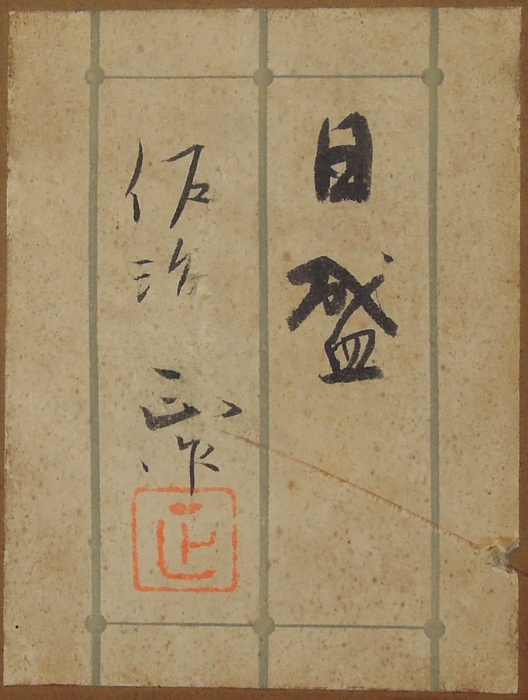 日盛
佐治 正作
正